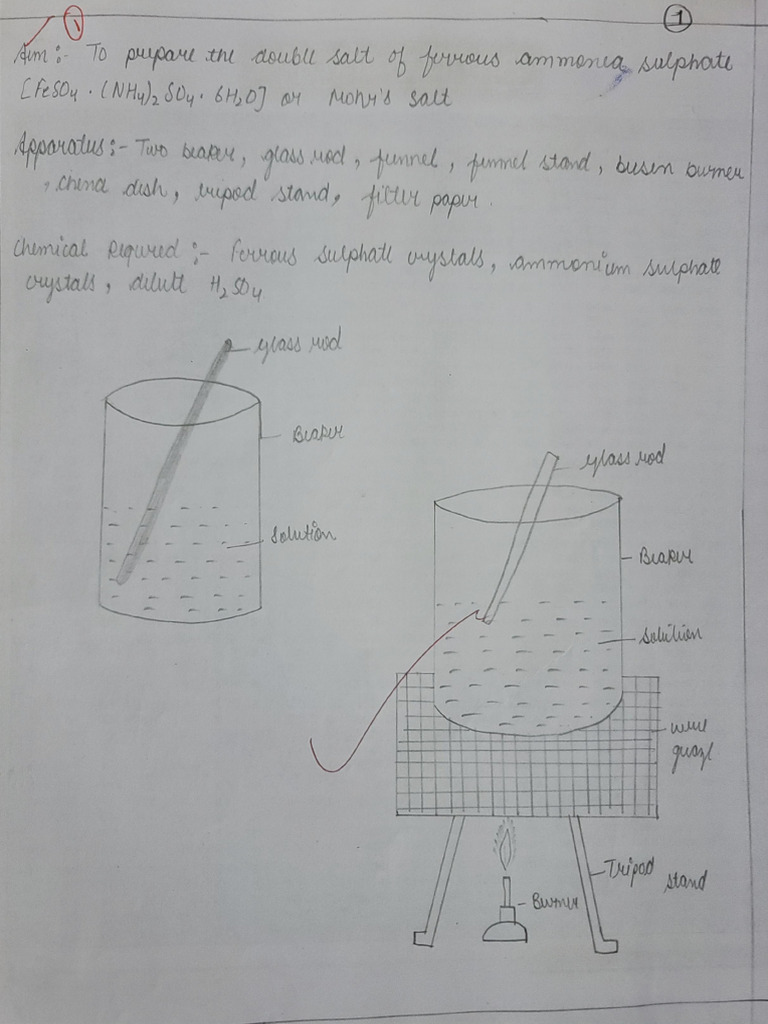 1
1
Aim :- To prepare the double salt of ferrous ammonea sulphate
[FeSO4 · (NH4)2 SO4 · 6H2O] or Mohr's salt
Apparatus :- Two beaker, glass rod, funnel, funnel stand, busen burner
, china dish, tripod stand, filter paper.
Chemical Required :- Ferrous sulphate crystals, ammonium sulphate
crystals, dilute H2SO4
glass rod
Beaker
solution
glass rod
Beaker
solution
wire
guaze
Tripod
stand
Burner